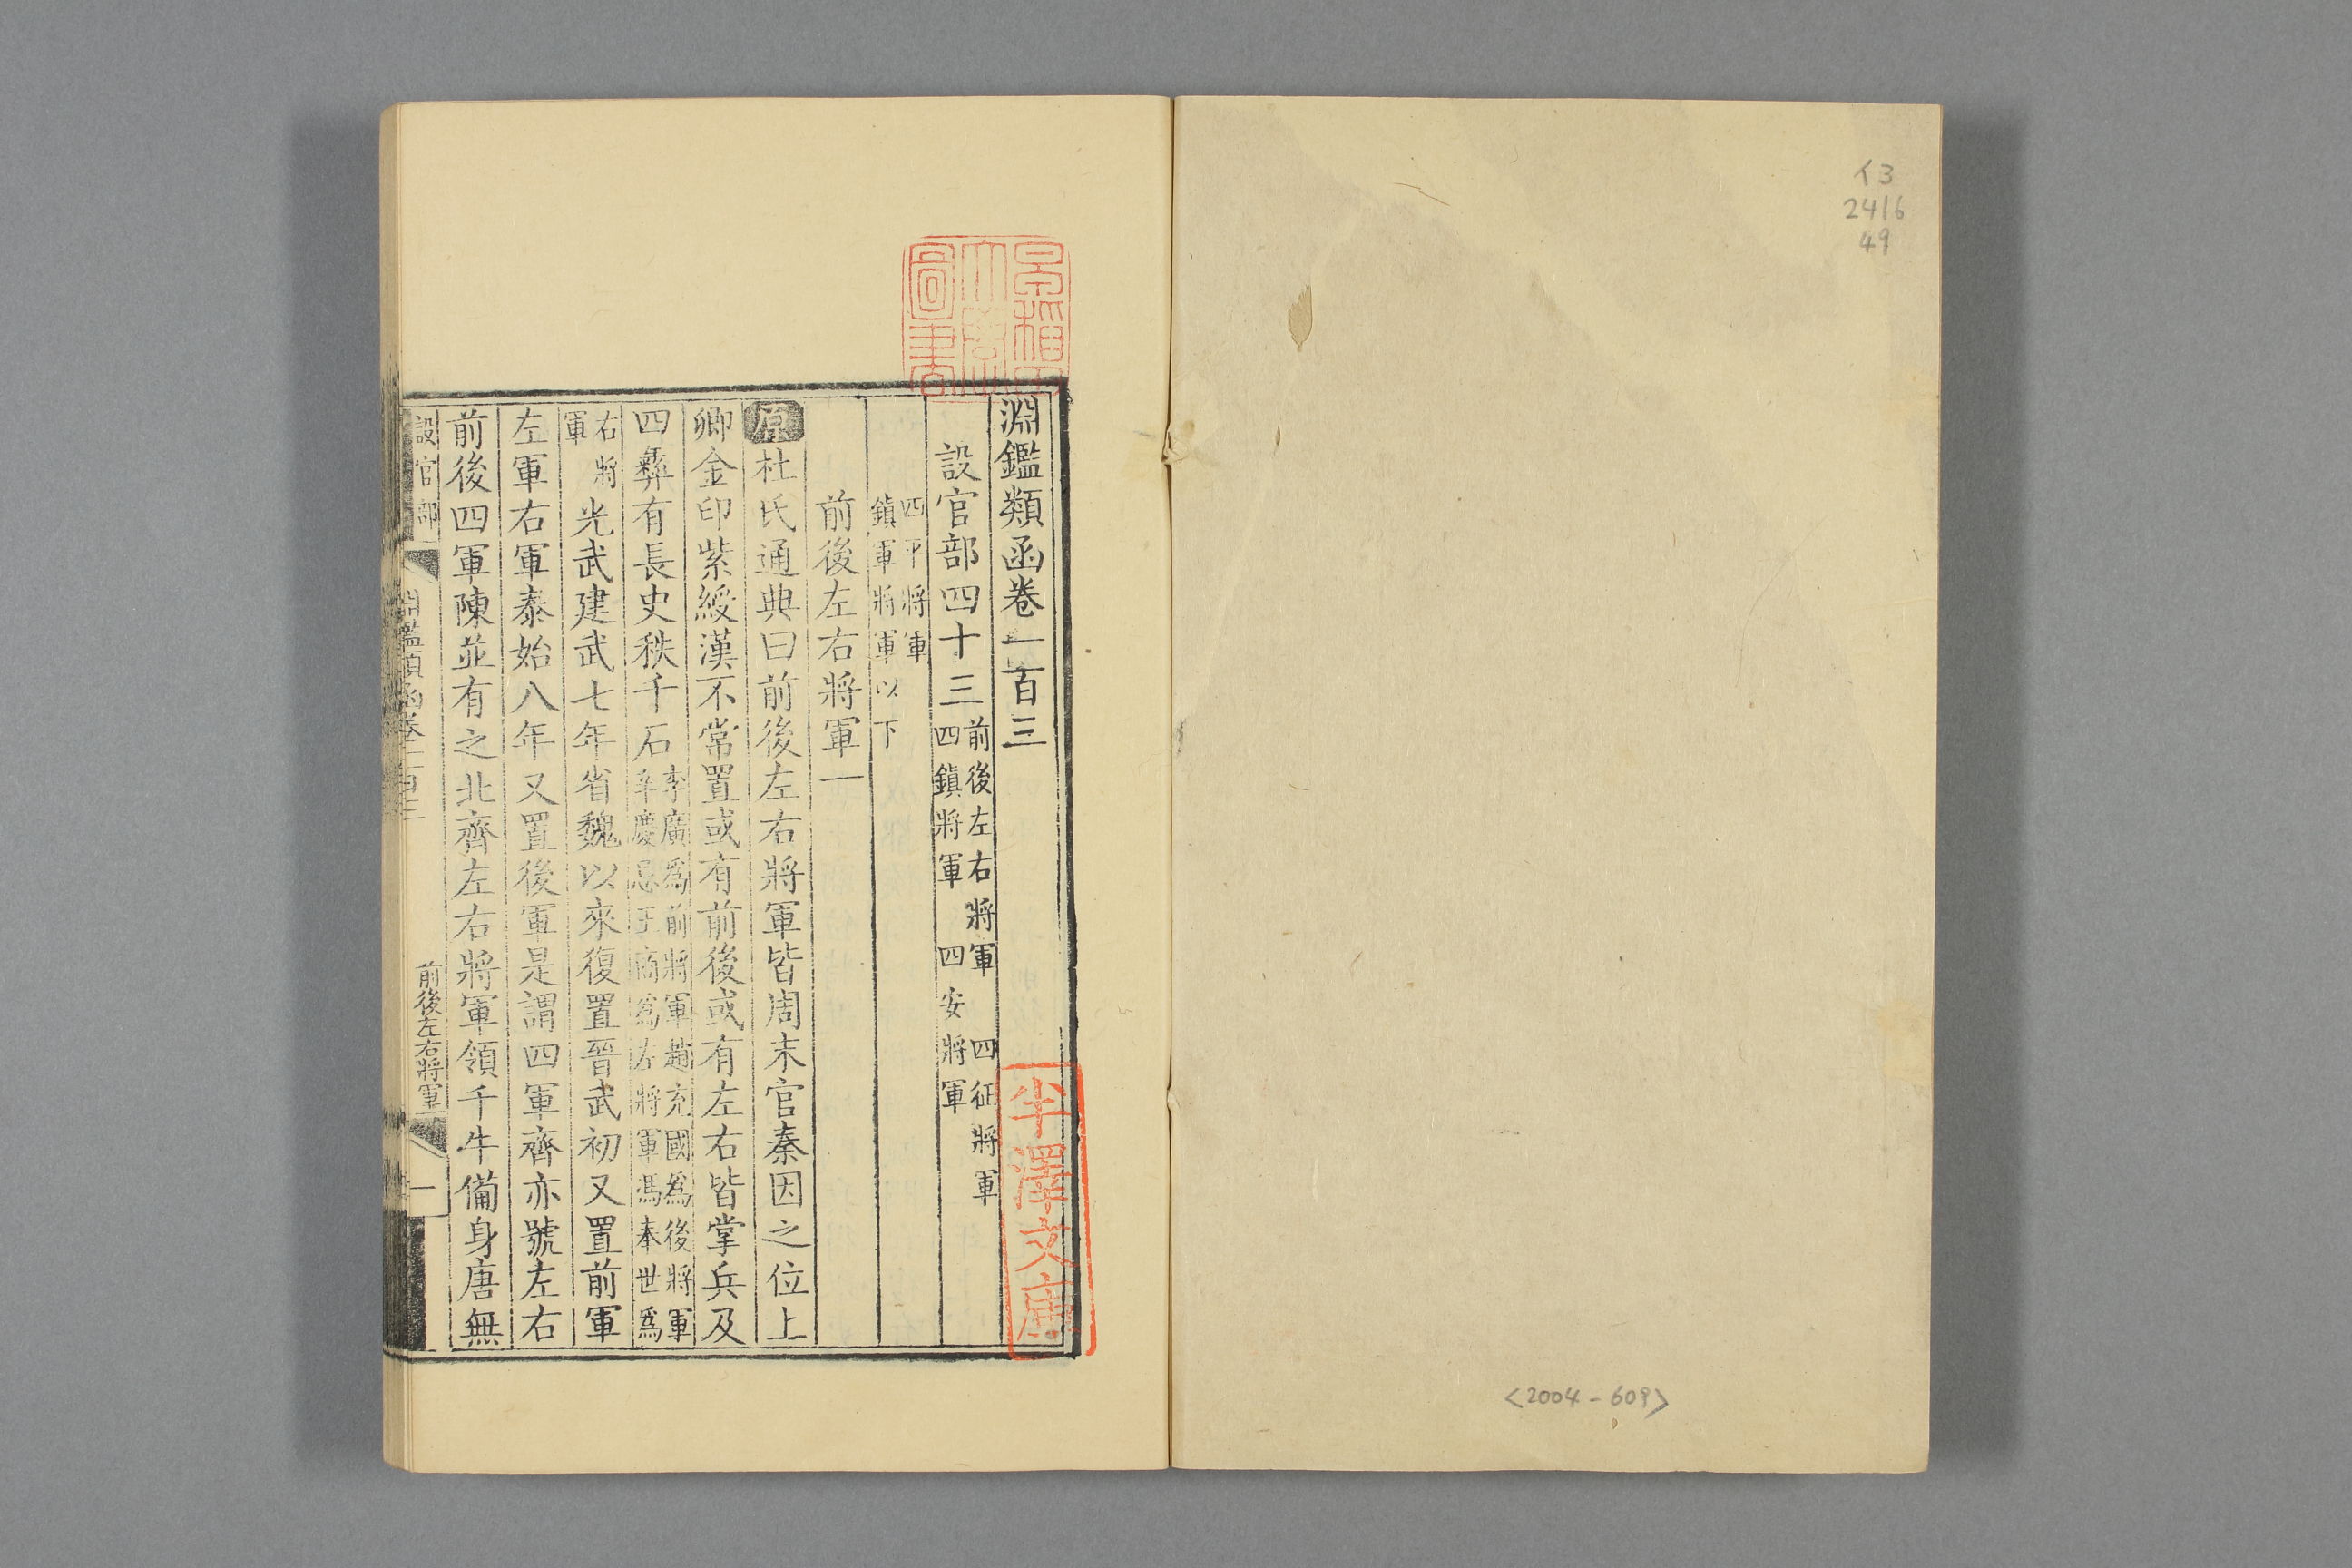 イ3
2416
49
<2004-609>
淵鑑類函卷一百三
設官部四十三
前後左右將軍 四征將軍
四鎮將軍 四安將軍
四平將軍
鎮軍將軍以下
前後左右將軍一
原杜氏通典曰前後左右將軍皆周末官秦因之位上
卿金印紫綬漢不常置或有前後或有左右皆掌兵及
四彝有長史秩千石
李廣爲前將軍趙充國爲後將軍
辛慶忌王商爲左將軍馮奉世爲
右將
軍
光武建武七年省魏以來復置晉武初又置前軍
左軍右軍泰始八年又置後軍是謂四軍齊亦號左右
前後四軍陳並有之北齊左右將軍領千牛備身唐無
設官部
淵鑑類函卷一百三
前後左右將軍一
一
半澤文庫